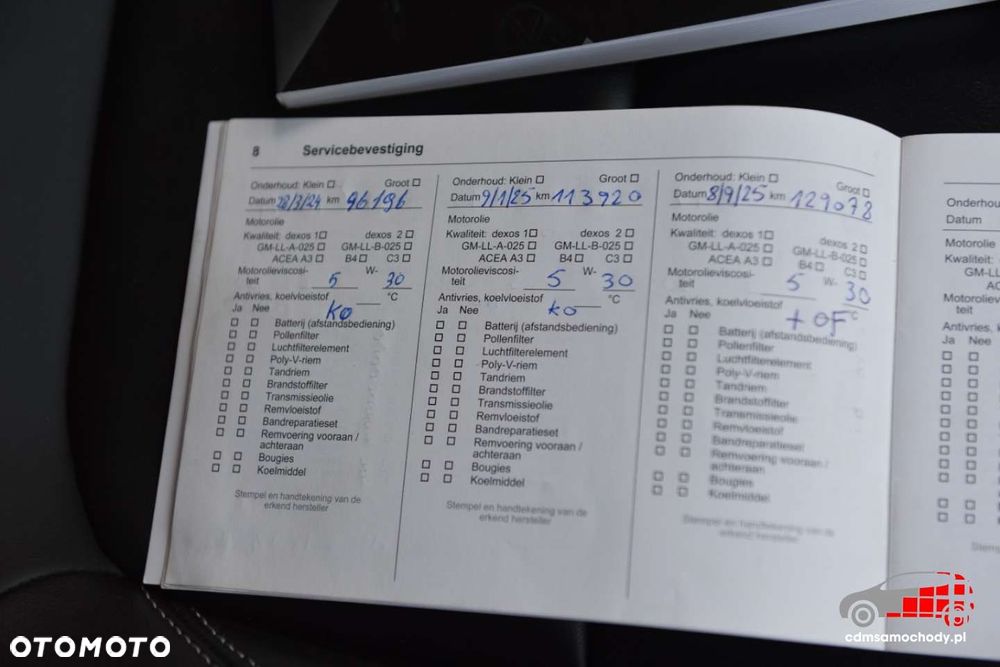 8 Servicebevestiging
Onderhoud: Klein Groot
Datum 28/3/24 km 96196
Motorolie
Kwaliteit: dexos 1 dexos 2
GM-LL-A-025 GM-LL-B-025
ACEA A3 B4 C3
Motorolieviscosi- W-
teit 5 30
Antivries, koelvloeistof °C
Ja Nee KO
Batterij (afstandsbediening)
Pollenfilter
Luchtfilterelement
Poly-V-riem
Tandriem
Brandstoffilter
Transmissieolie
Remvloeistof
Bandreparatieset
Remvoering vooraan /
achteraan
Bougies
Koelmiddel
Stempel en handtekening van de
erkend hersteller
Onderhoud: Klein Groot
Datum 9/1/25 km 113920
Motorolie
Kwaliteit: dexos 1 dexos 2
GM-LL-A-025 GM-LL-B-025
ACEA A3 B4 C3
Motorolieviscosi- W-
teit 5 30
Antivries, koelvloeistof °C
Ja Nee KO
Batterij (afstandsbediening)
Pollenfilter
Luchtfilterelement
Poly-V-riem
Tandriem
Brandstoffilter
Transmissieolie
Remvloeistof
Bandreparatieset
Remvoering vooraan /
achteraan
Bougies
Koelmiddel
Stempel en handtekening van de
erkend hersteller
Onderhoud: Klein Groot
Datum 8/9/25 km 129078
Motorolie
Kwaliteit: dexos 1 dexos 2
GM-LL-A-025 GM-LL-B-025
ACEA A3 B4 C3
Motorolieviscosi- W-
teit 5 30
Antivries, koelvloeistof °C
Ja Nee
Batterij (afstandsbediening)
Pollenfilter
Luchtfilterelement
Poly-V-riem
Tandriem
Brandstoffilter
Transmissieolie
Remvloeistof
Bandreparatieset
Remvoering vooraan /
achteraan
Bougies
Koelmiddel
Stempel en handtekening van de
erkend hersteller
Datum
Motorolie
Kwaliteit:
Ja Nee
OTOMOTO
cdmsamochody.pl